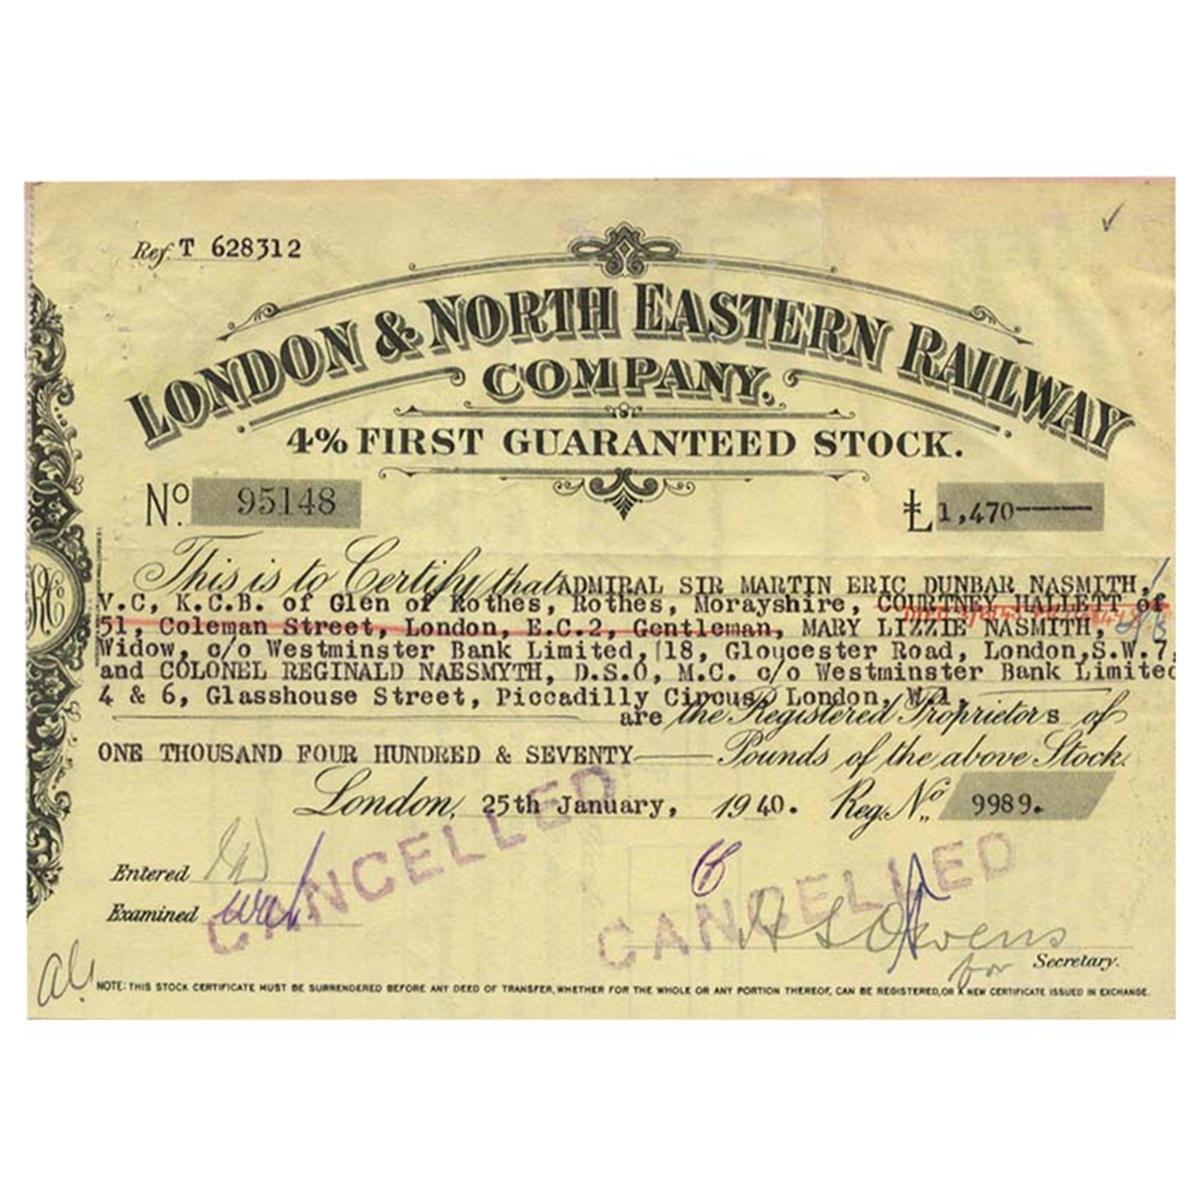 Ref. T 628312
LONDON & NORTH EASTERN RAILWAY
COMPANY.
4% FIRST GUARANTEED STOCK.
No. 95148 £1,470
This is to Certify that ADMIRAL SIR MARTIN ERIC DUNBAR NASMITH,
V.C, K.C.B. of Glen of Rothes, Rothes, Morayshire, COURTNEY HALLETT of
51, Coleman Street, London, E.C.2, Gentleman, MARY LIZZIE NASMITH,
Widow, c/o Westminster Bank Limited, 18, Gloucester Road, London,S.W.7,
and COLONEL REGINALD NAESMYTH, D.S.O, M.C. c/o Westminster Bank Limited
4 & 6, Glasshouse Street, Piccadilly Circus, London, W.1,
are the Registered Proprietors of
ONE THOUSAND FOUR HUNDRED & SEVENTY Pounds of the above Stock.
London, 25th January, 1940. Reg. No. 9989.
CANCELLED
CANCELLED
Entered
Examined
H S Owens
for Secretary.
NOTE: THIS STOCK CERTIFICATE MUST BE SURRENDERED BEFORE ANY DEED OF TRANSFER, WHETHER FOR THE WHOLE OR ANY PORTION THEREOF, CAN BE REGISTERED, OR A NEW CERTIFICATE ISSUED IN EXCHANGE.